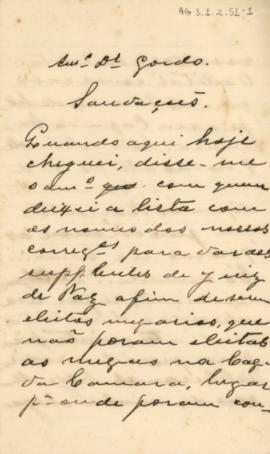 AG 3.1.2.51-1
Amº Dr Gordo.
Saudações.
Quando aqui hoje
cheguei, disse-me
o amº com quem
deixei a lista com
os nomes dos nossos
correg.es para
supplentes de Juiz
de Paz afim de serem
eleitas, que
não foram eleitas
as na
da Camara, lugar
pª onde foram con-